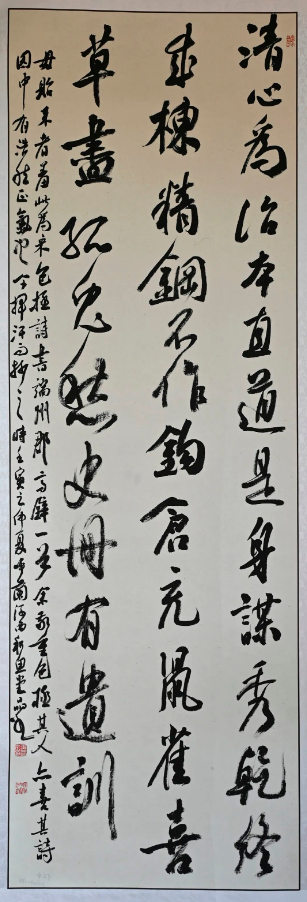 清心為治本直道是身謀秀乾終
成棟精鋼不作鈎倉充鼠雀喜
草盡狐兔愁史冊有遺訓
毋貽來者羞此為宋包拯詩書端州郡齋壁一首余敬重包拯其人亦喜其詩
因中有浩然正氣也今揮汗而抄之時壬寅之仲夏於